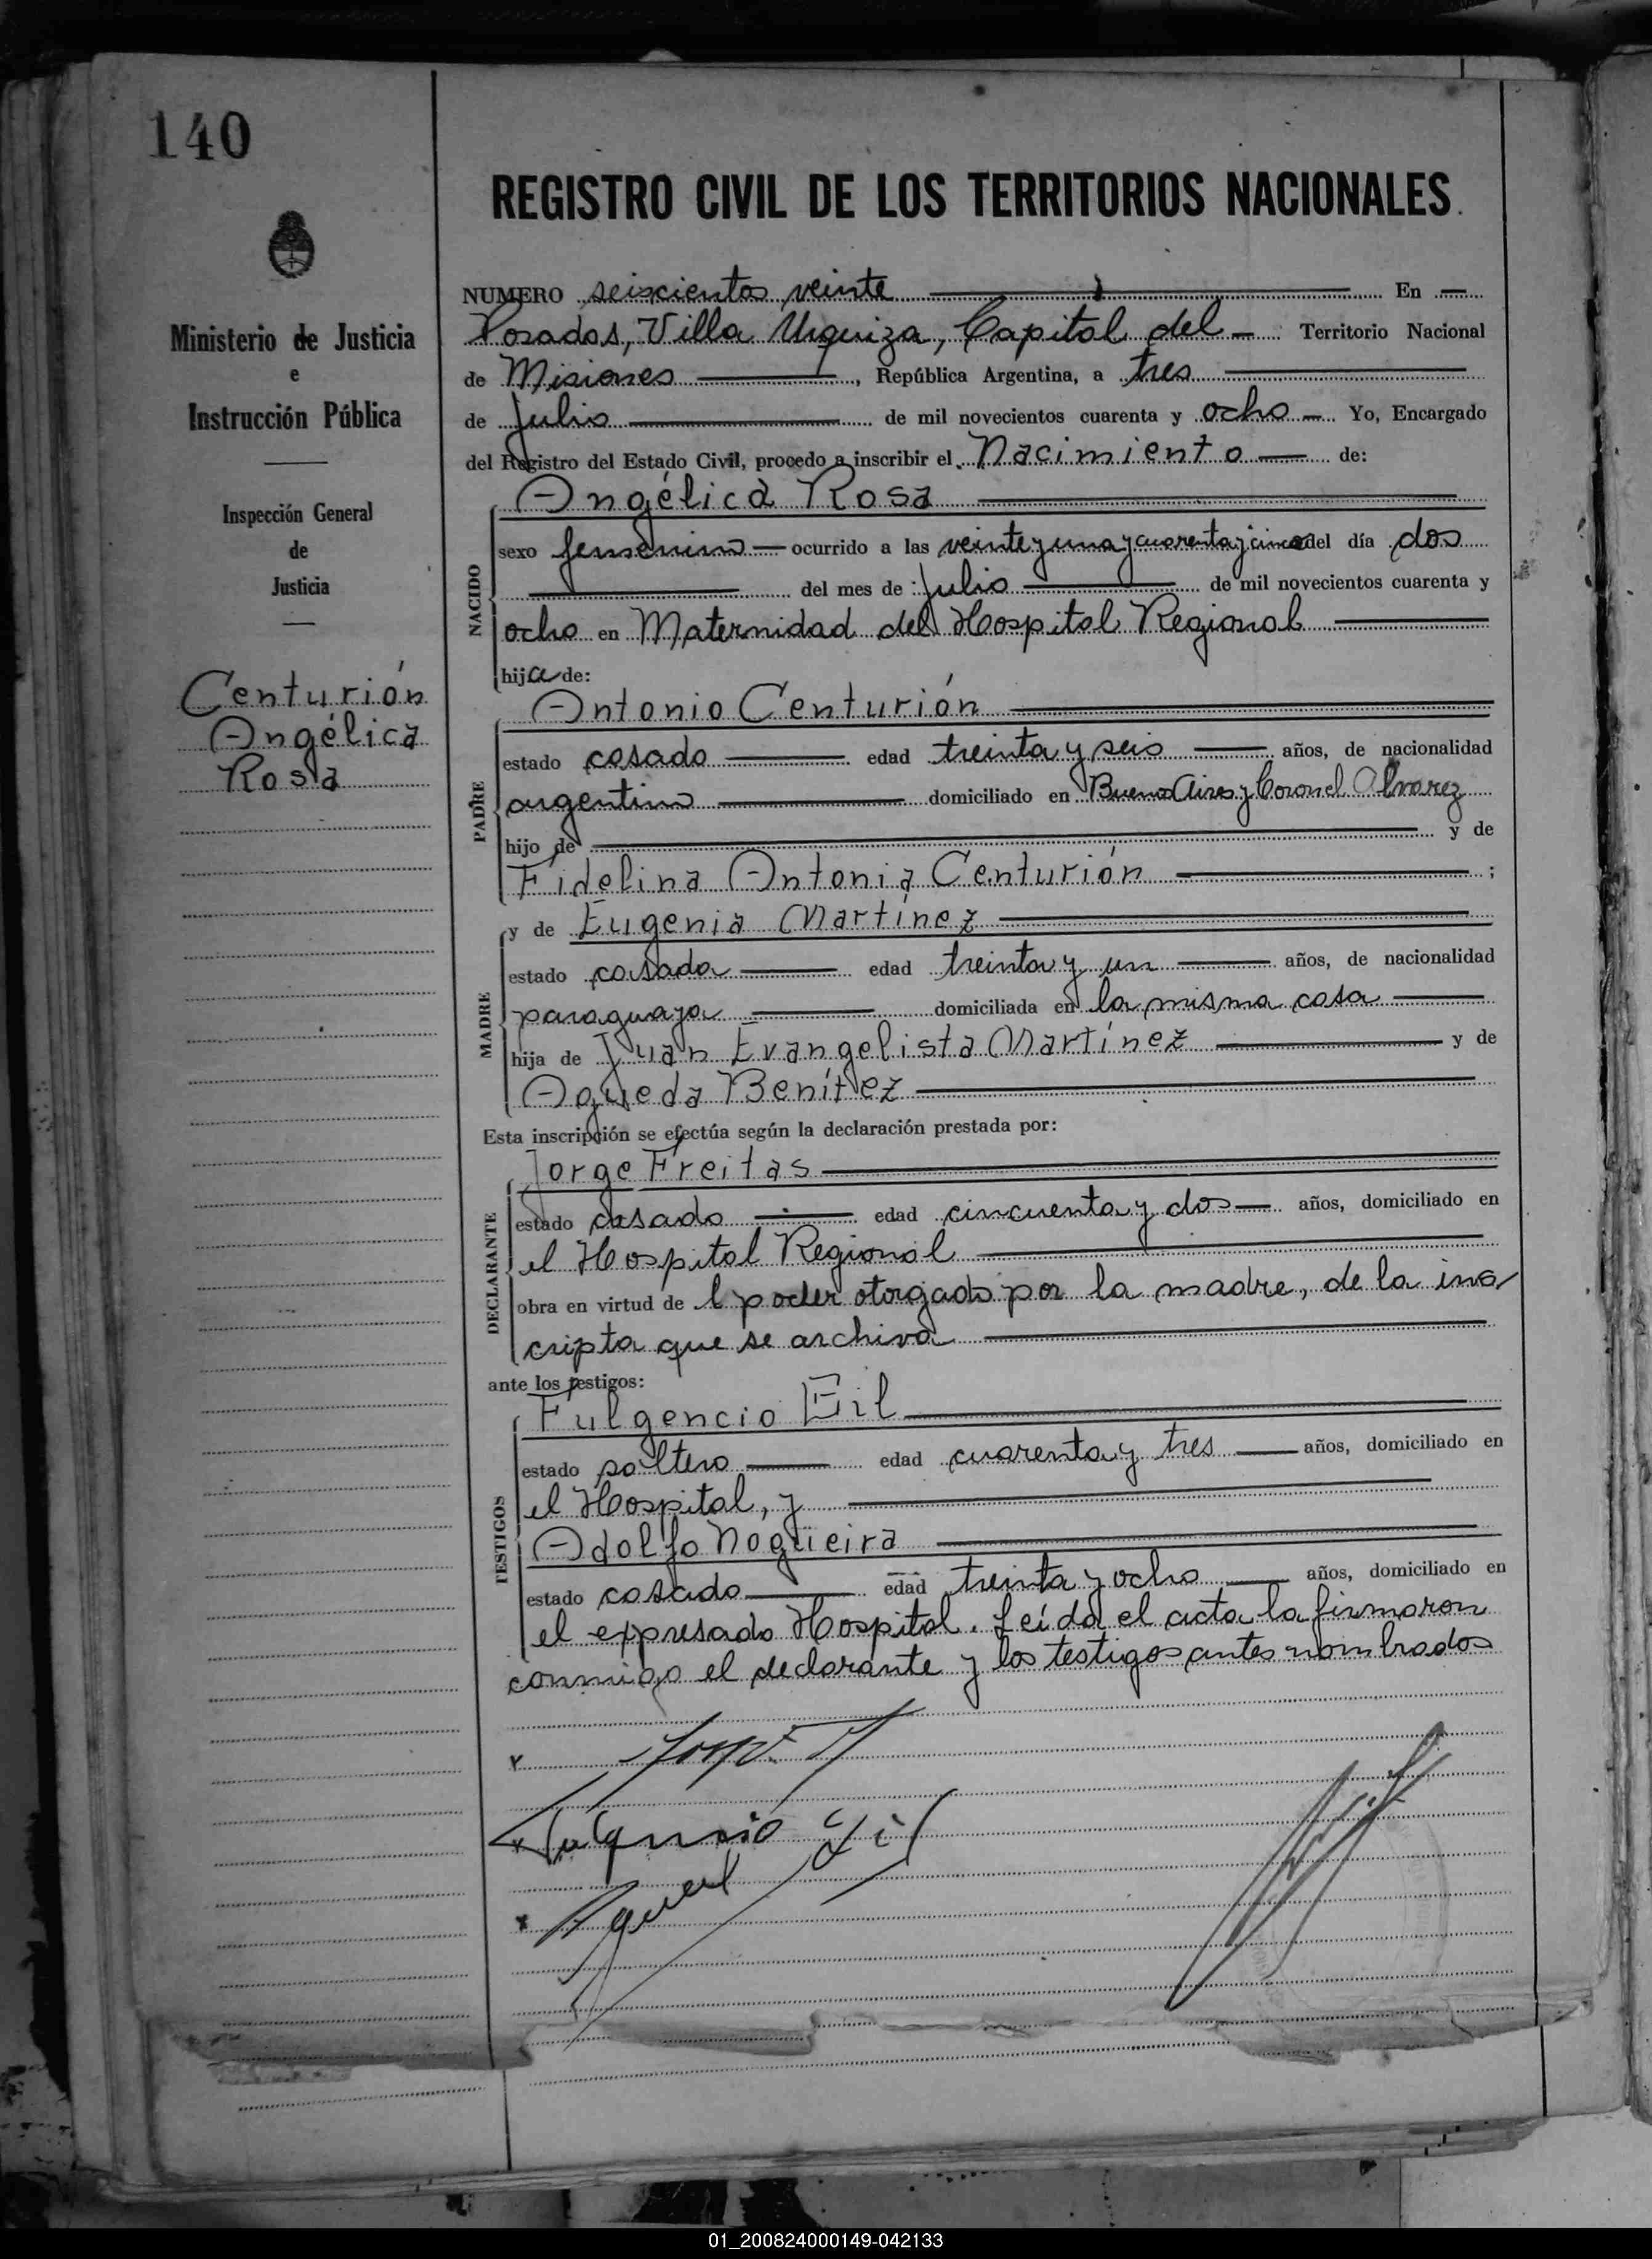 140
REGISTRO CIVIL DE LOS TERRITORIOS NACIONALES.
Ministerio de Justicia
e
Instrucción Pública
Inspección General
de
Justicia
Centurión
Angélica
Rosa
NUMERO seiscientos veinte En
Posadas, Villa Urquiza, Capital del Territorio Nacional
de Misiones, República Argentina, a tres
de Julio de mil novecientos cuarenta y ocho Yo, Encargado
del Registro del Estado Civil, procedo a inscribir el Nacimiento de:
NACIDO
Angélica Rosa
sexo femenino ocurrido a las veinte y una y cuarenta y cinco del día dos
del mes de Julio de mil novecientos cuarenta y
ocho en Maternidad del Hospital Regional
hija de:
PADRE
Antonio Centurión
estado casado edad treinta y seis años, de nacionalidad
argentino domiciliado en Buenos Aires y Coronel Alvarez
hijo de y de
Fidelina Antonia Centurión ;
MADRE
y de Eugenia Martínez
estado casada edad treinta y un años, de nacionalidad
paraguaya domiciliada en la misma casa
hija de Juan Evangelista Martínez y de
Agueda Benítez
Esta inscripción se efectúa según la declaración prestada por:
DECLARANTE
Jorge Freitas
estado casado edad cincuenta y dos años, domiciliado en
el Hospital Regional
obra en virtud de l poder otorgado por la madre, de la ins
cripta que se archiva
ante los testigos:
TESTIGOS
Fulgencio Gil
estado soltero edad cuarenta y tres años, domiciliado en
el Hospital, y
Adolfo Nogüeira
estado casado edad treinta y ocho años, domiciliado en
el expresado Hospital. Leída el acta la firmaron
conmigo el declarante y los testigos antes nombrados
Fulgencio Gil
01_200824000149-042133